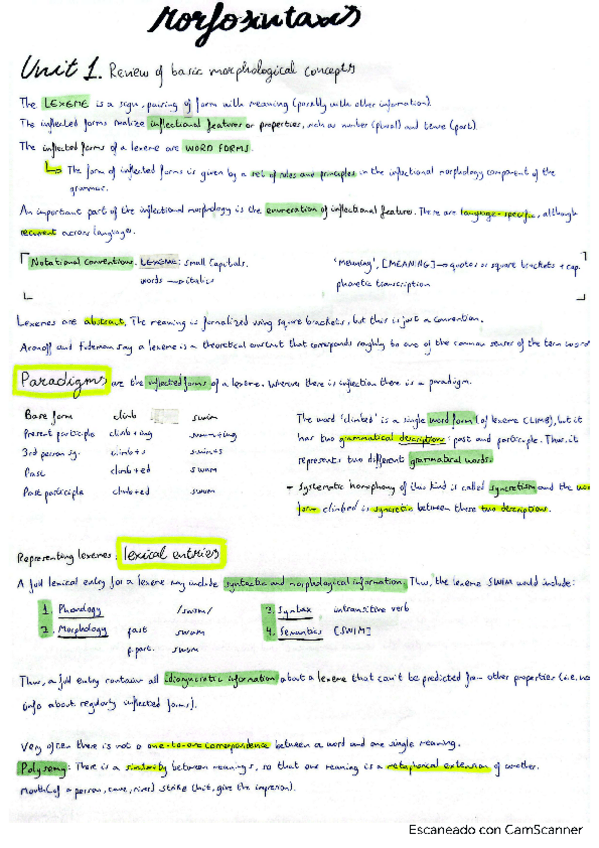 Morfosintaxis
Unit 1. Review of basic morphological concepts
The LEXEME is a sign, pairing of form with meaning (possibly with other information).
The inflected forms realize inflectional features or properties, such as number (plural) and tense (past).
The inflected forms of a lexeme are WORD FORMS.
The form of inflected forms is given by a set of rules and principles in the inflectional morphology component of the
grammar.
An important part of the inflectional morphology is the enumeration of inflectional feature. These are language-specific, although
recurrent across languages.
Notational conventions. LEXEME: small capitals. 'Meaning', [MEANING] → quotes or square brackets + cap.
words → italics phonetic transcription
Lexemes are abstract. The meaning is formalized using square brackets, but this is just a convention.
Aronoff and Fudeman say a lexeme is a theoretical construct that corresponds roughly to one of the common senses of the term word
Paradigms are the inflected forms of a lexeme. Wherever there is inflection there is a paradigm.
Base form climb swim
Present participle climb+ing swim+ing
3rd person sg. climb+s swim+s
Past climb+ed swam
Past participle climb+ed swum
The word 'climbed' is a single word form (of lexeme CLIMB), but it
has two grammatical descriptions: past and participle. Thus, it
represents two different grammatical words.
→ Systematic homophony of this kind is called syncretism and the word
form climbed is syncretic between these two descriptions.
Representing lexemes: lexical entries
A full lexical entry for a lexeme may include syntactic and morphological information. Thus, the lexeme SWIM would include:
1. Phonology /swim/ 3. Syntax intransitive verb
2. Morphology past swam 4. Semantics [SWIM]
p.part. swum
Thus, a full entry contains all idiosyncratic information about a lexeme that can't be predicted from other properties (i.e. no
info about regularly inflected forms).
Very often there is not a one-to-one correspondence between a word and one single meaning.
Polysemy: There is a similarity between meanings, so that one meaning is a metaphorical extension of another.
Mouth (of a person, cave, river) strike (hit, give the impression).
Escaneado con CamScanner